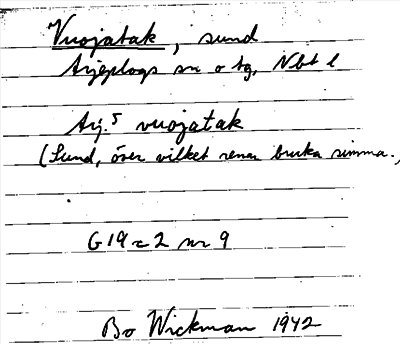 Vuojatak, sund
Arjeplogs sn o tg, Nbt l
Arj.5 vuojatak
(Sund, över vilket renar bruka simma.)
G 19 c 2 nr 9
Bo Wickman 1942